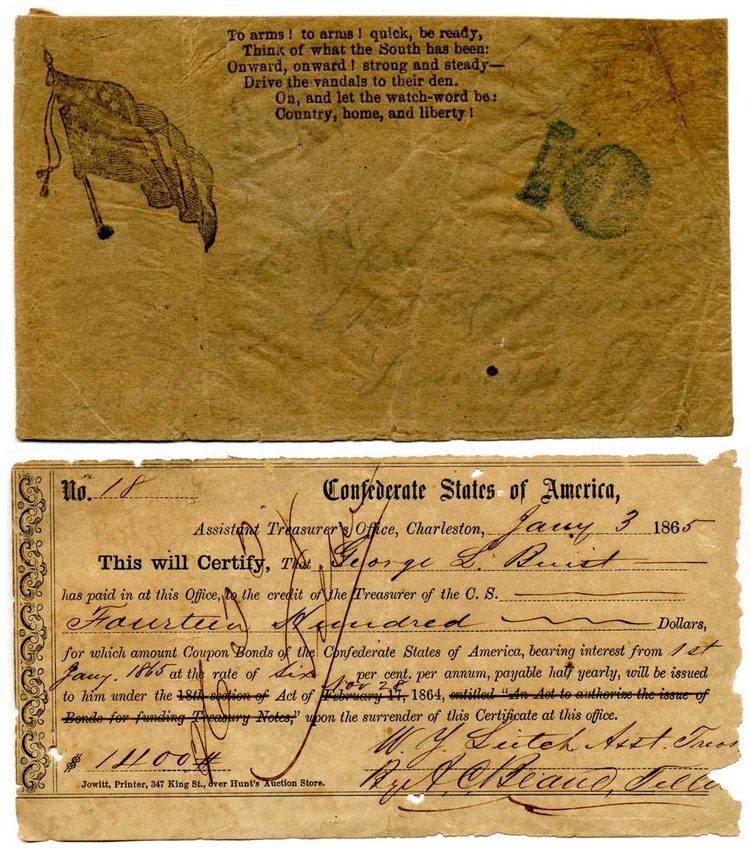 To arms! to arms! quick, be ready,
Think of what the South has been:
Onward, onward! strong and steady—
Drive the vandals to their den.
On, and let the watch-word be:
Country, home, and liberty!
10
No. 18
Confederate States of America,
Assistant Treasurer's Office, Charleston, Jany 3 1865
This will Certify, That George L. Buist
has paid in at this Office, to the credit of the Treasurer of the C. S.
Fourteen Hundred Dollars,
for which amount Coupon Bonds of the Confederate States of America, bearing interest from 1st
Jany. 1865 at the rate of Six per cent. per annum, payable half yearly, will be issued
Nov 28
to him under the 18th section of Act of February 17, 1864, entitled "An Act to authorize the issue of
Bonds for funding Treasury Notes," upon the surrender of this Certificate at this office.
$ 1400
W. Y. Leitch Asst. Treas
Jowitt, Printer, 347 King St., over Hunt's Auction Store.